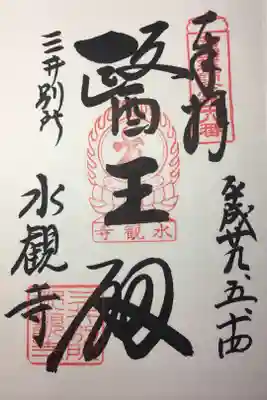 奉拝
平成廿九、五、十四
醫王殿
水観寺
三井別所
水観寺